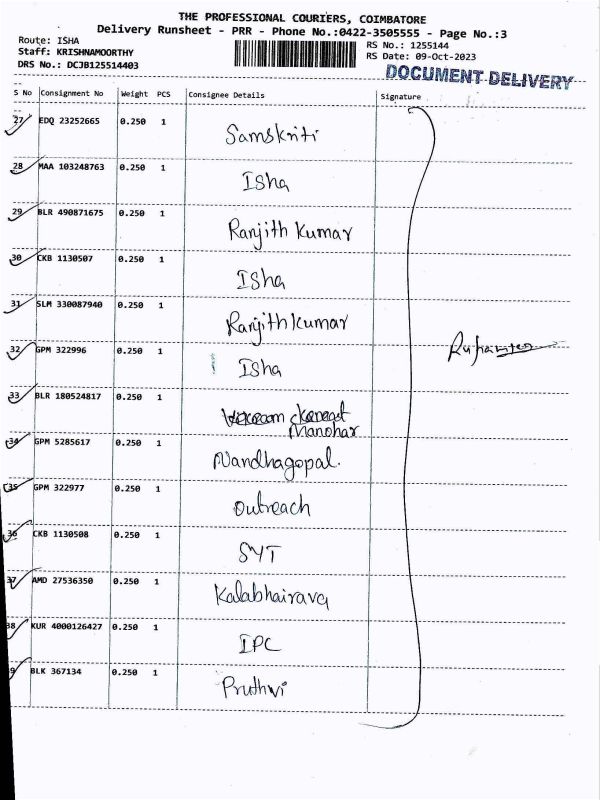 THE PROFESSIONAL COURIERS, COIMBATORE
Delivery Runsheet - PRR - Phone No.:0422-3505555 - Page No.:3
Route: ISHA
Staff: KRISHNAMOORTHY
DRS No.: DCJB125514403
RS No.: 1255144
RS Date: 09-Oct-2023
DOCUMENT DELIVERY
S No Consignment No Weight PCS Consignee Details Signature
27 EDQ 23252665 0.250 1
Samskriti
28 MAA 103248763 0.250 1
Isha
29 BLR 490871675 0.250 1
Ranjith Kumar
30 CKB 1130507 0.250 1
Isha
31 SLM 330087940 0.250 1
Ranjith Kumar
32 GPM 322996 0.250 1
Isha
33 BLR 180524817 0.250 1
Manohar
34 GPM 5285617 0.250 1
Nandhagopal.
35 GPM 322977 0.250 1
Outreach
36 CKB 1130508 0.250 1
SYT
37 AMD 27536350 0.250 1
Kalabhairava
38 KUR 4000126427 0.250 1
IPC
9 BLK 367134 0.250 1
Pruthvi